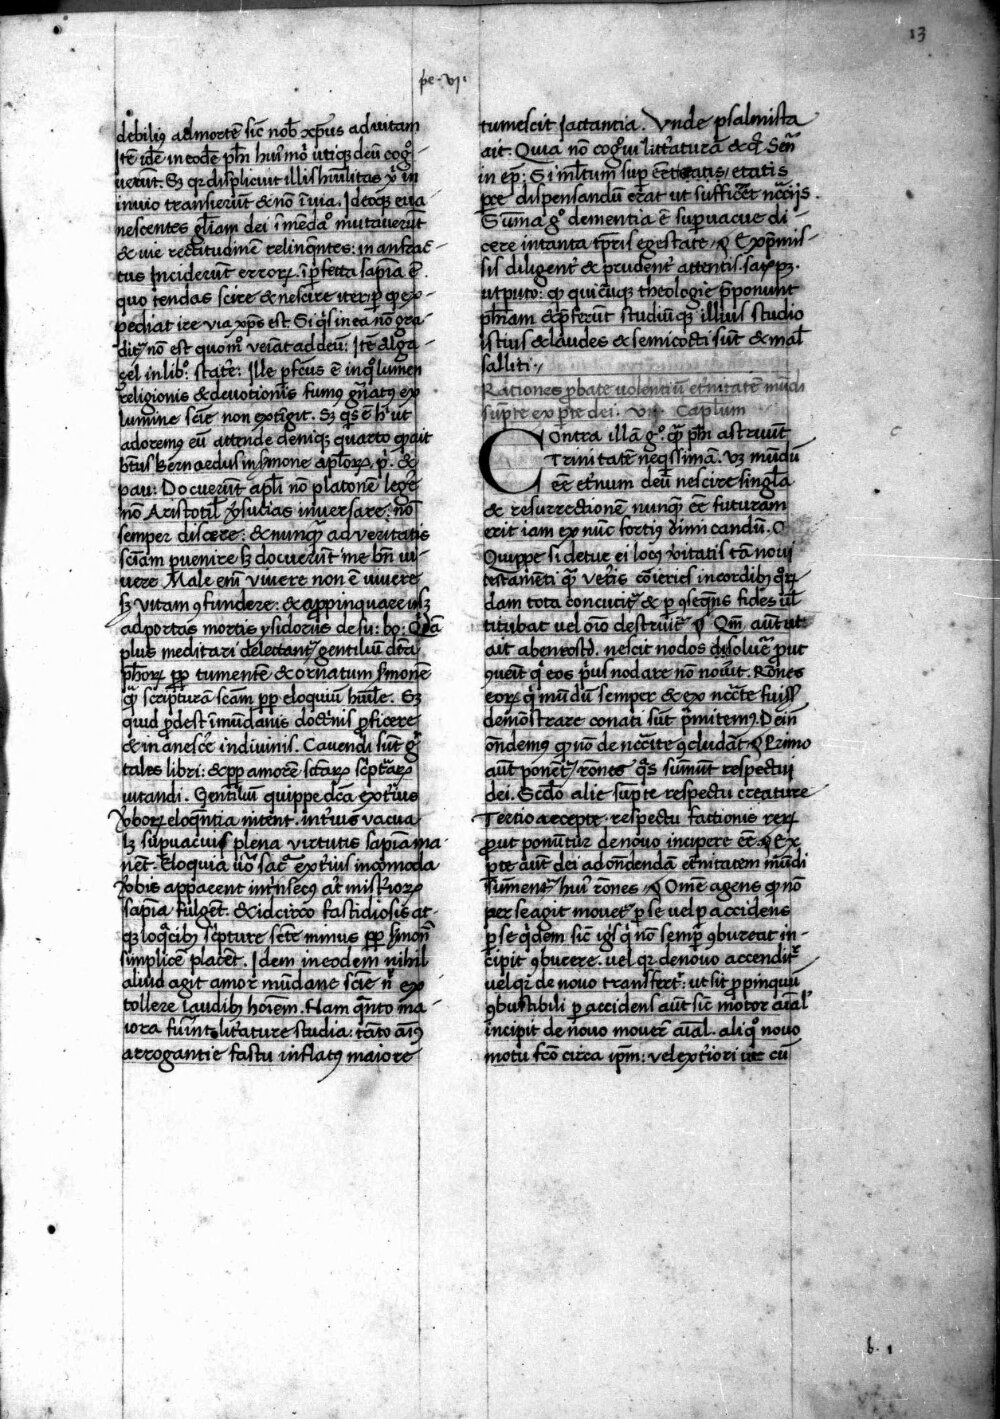 13
pe. vj.
debiliꝰ ad mortē sic nob̄ xp̄us ad vitam
Itē idē in eodē ph̄i huiꝰmo᷑ utiqꝫ deū cog᷑
uerūt. Sꝫ qꝛ displicuit illis hūilitas xp̄i in
inuio transierūt & nō ī uia. Ideoqꝫ eua
nescentes gl̄iam dei ī mēdaꝰ mutauer̄t
& uie rectitudinē relinq̄ntes: in anfrac-
tus inciderūt erroꝝ. īp̄fetta sap̄ia ē.
quo tendas scire & nescire iter, ꝑ qd̓ ex-
pediat ire via xp̄s est. Si q̓s in ea nō gra-
ditꝰ, nō est quomō veīat ad deū: Itē alga
çel in lib̓: state᷑: Ille ꝑfc̄us ē inqͦ lumen
religionis & deuotionis fumo gn̄atꝰ ex
lumine scīe non extīgit. Sꝫ q̓s ē hͥ ut
adoremꝰ eū attende deniqꝫ quarto qd̓ ait
b̄tus Bernardus in sꝰmone apl̓oꝝ. p. &
pau: Docuerūt apl̓i nō platonē lege᷑
nō Aristotil̓ ꝟsucias inuersare. nō
semper discere: & nunqꝫ ad veritatis
scīam ꝑuenire sꝫ docuerūt me bn̄ vi-
uere. Male em̄ viuere non ē viuere
sꝫ vitam ꝯfundere: & appinquare usqꝫ
ad portas mortis ysidorus de su: bo: Q̓dā
plus meditari delectantꝰ gentiliū dc̄a
ph̄oꝝ ꝓꝑ tumentē & ornatum sꝰmonē
qꝫ scripturā scām ꝓꝑ eloquiū hūile. Sꝫ
quid ꝓdest ī mūdanis doct̓nis ꝓficere
& inanesc̓e in diuinis. Cauendi sūt g᷑
tales libri: & ꝓꝑ amorē sc̄arꝝ sc̓ptarꝝ
uitandi. Gentiliū quippe dc̄a ext̓ius
ꝟboꝝ eloq̄ntia nitent. int̓ius vacua
ꝉ supuacuis plena virtutis sapīa ma
nēt. Eloquia v̄o sac̄ ext̓ius incomoda
ꝟbis apparent int̓nsecus at̓ mist̓ioꝝ
sapīa fulgēt. & idcirco fastidiosis at-
qꝫ loq̄cibꝫ sc̓pture scē minus ꝓꝑ sꝰmonē
simplicē placēt. Idem in eodem nihil
aliud agit amor mūdane scīe n̓ ex
tollere laudibꝫ hoīem. Nam q̄nto ma-
iora fuīnt litt̓ature studia: tāto aīus
arrogantie fastu inflatꝰ maiore
tumescit iactantia. Vnde psalmista
ait. Quia nō cogͦui litt̓aturā & c̓. Senͤ
in ep̄: Si ml̄tum sup eēt etatis etatis
pꝛe dispensandū erat ut sufficēt nc̄ciijs.
Sūma g᷑ dementia ē suꝑuacue di-
cere in tanta tp̄ris egestate. ¶ Ex p̄mis-
sis diligent̓ & prudent̓ attentis.
ut puto: qd̓ quicūqꝫ theologie p̄ponunt
ph̄iam & p̄ferūt studiūqꝫ illius studio
istius & laudes & semicocti sūt & mal̓
salliti.
Rationes ꝓbate volentiū et̓nitatē mūdi
sūpte ex ꝑte dei. VII. Caplum
COntra illā g᷑ q̄ ph̄i astruūt
Trinitatē neqssimā. Vꝫ mūdū
eē et̓num deū nescire singl̄a
& resurrectionē nunqꝫ eē futuram
erit iam ex nūc fortiꝰ dimicandū.
Quippe si detur ei locꝰ ꝟitatis tā noui
testamēti qꝫ vet̓is cōiericͥs in cordibꝫ qͦꝝ
dam tota concucitꝰ & ꝑ ꝯseq̄ns fides ul̓
titubat uel oīo destruit̓ ¶ Qm̄ aūt ut
ait abenrosd̓. nescit nodos disoluē put
ꝯuēit q̓ eos pͥus nodare nō nouit. Rōnes
eoꝝ q̓ mūdū semper & ex nc̄cīte fuiss̓
demōstrare conati sūt p̄mitemꝰ. Dein
oñdemꝰ qd̓ nō de nc̄cīte ꝯcludāt ¶ Primo
aūt ponent̓ rōnes q̄s sūmūt respectui
dei. Scd̓o alie sūpte respectu creature
Tertio accepte respectu factionis reꝝ
ꝓut ponūtur de nouo incipere eē. ¶ Ex
ꝑte aūt dei ad oñdendā et̓nitatem mūdi
sūmentꝰ huiꝰ rōnes. ¶ Omē agens qd̓ nō
per se agit mouetꝰ. ꝑ se uel ꝑ accidens
ꝑ se q̓dem sic ig̓s q̓ nō semꝑ ꝯbureat in-
cipit ꝯburere. uel qꝛ de nouo accendit̓
uel qꝛ de nouo transfert̓: ut sit ꝓpinquū
ꝯbustibili ꝑ accidens aūt sic motor aīal̓
incipit de nouo mouerē aīal. aliqͦ nouo
motu fc̄o circa ip̄m: vel ext̓iori ut cū
c
b. 1